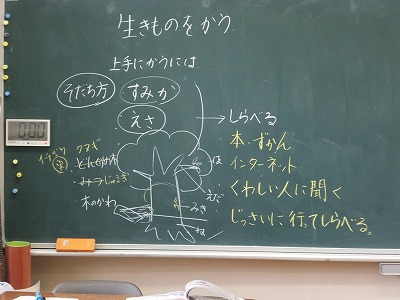 生きものをかう
上手にかうには
そだち方
すみか
えさ
しらべる
本・ずかん
インターネット
くわしい人に聞く
じっさいに行ってしらべる。
クヌギ
木のかわ
は
えだ
みき
ね
0:00